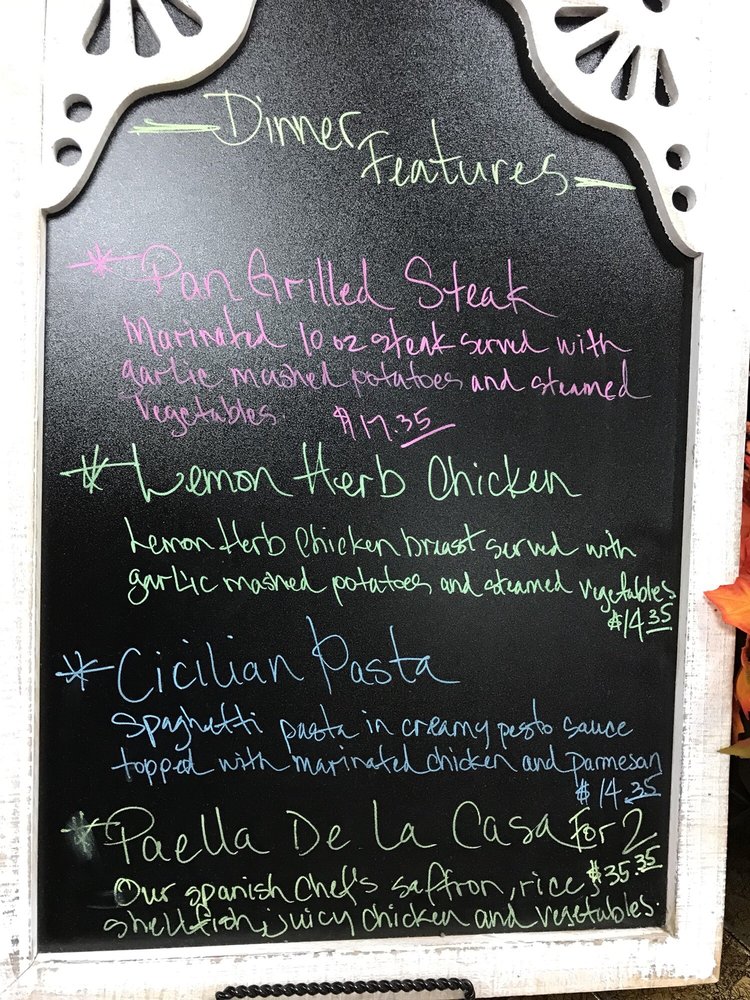 Dinner
Features
* Pan Grilled Steak
Marinated 10 oz steak served with
garlic mashed potatoes and steamed
vegetables. $17.35
* Lemon Herb Chicken
Lemon Herb Chicken breast served with
garlic mashed potatoes and steamed vegetables
$14.35
* Cicilian Pasta
Spaghetti pasta in creamy pesto sauce
topped with marinated chicken and parmesan
$14.35
* Paella De La Casa For 2
Our spanish chef's saffron, rice, $35.35
shellfish, juicy chicken and vegetables.